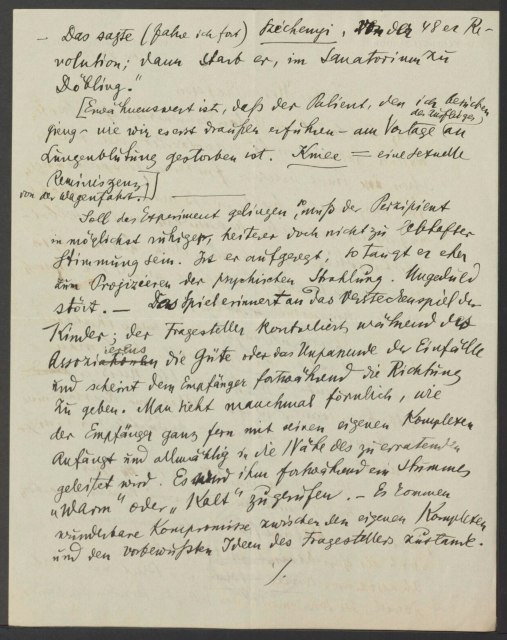 – Das sagte (fahre ich fort) Széchenyi, von der 48er Re-
volution; dann starb er, im Sanatorium zu
Döbling."
[Erwähnenswert ist, daß der Patient, den ich besuchen
der Zuflüger
ging – wie wir es erst draußen erfuhren – am Vortage an
Lungenblutung gestorben ist. Knie = eine sexuelle
Reminiszenz]
von der Wagenfahrt.
Soll das Experiment gelingen, muß der Perzipient
in möglichst ruhiger, heiterer doch nicht zu lebhafter
Stimmung sein. Ist er aufgeregt, so taugt er eher
zum Projizieren der psychischen Strahlung. Ungeduld
stört. – Das Spiel erinnert an das Versteckenspiel der
Kinder; der Fragesteller kontrolliert während des
Assoziierens die Güte oder das Unpassende der Einfälle
und scheint dem Empfänger fortwährend die Richtung
zu geben. Man sieht manchmal förmlich, wie
der Empfänger ganz fern mit seinen eigenen Komplexen
anfängt und allmählig in die Nähe des zu erratenden
geleitet wird. Es wird ihm fortwährend ein stummes
„Warm" oder „Kalt" zugerufen. – Es kommen
wunderbare Kompromisse zwischen den eigenen Komplexen
und den vorbewußten Ideen des Fragestellers zustande.
/.